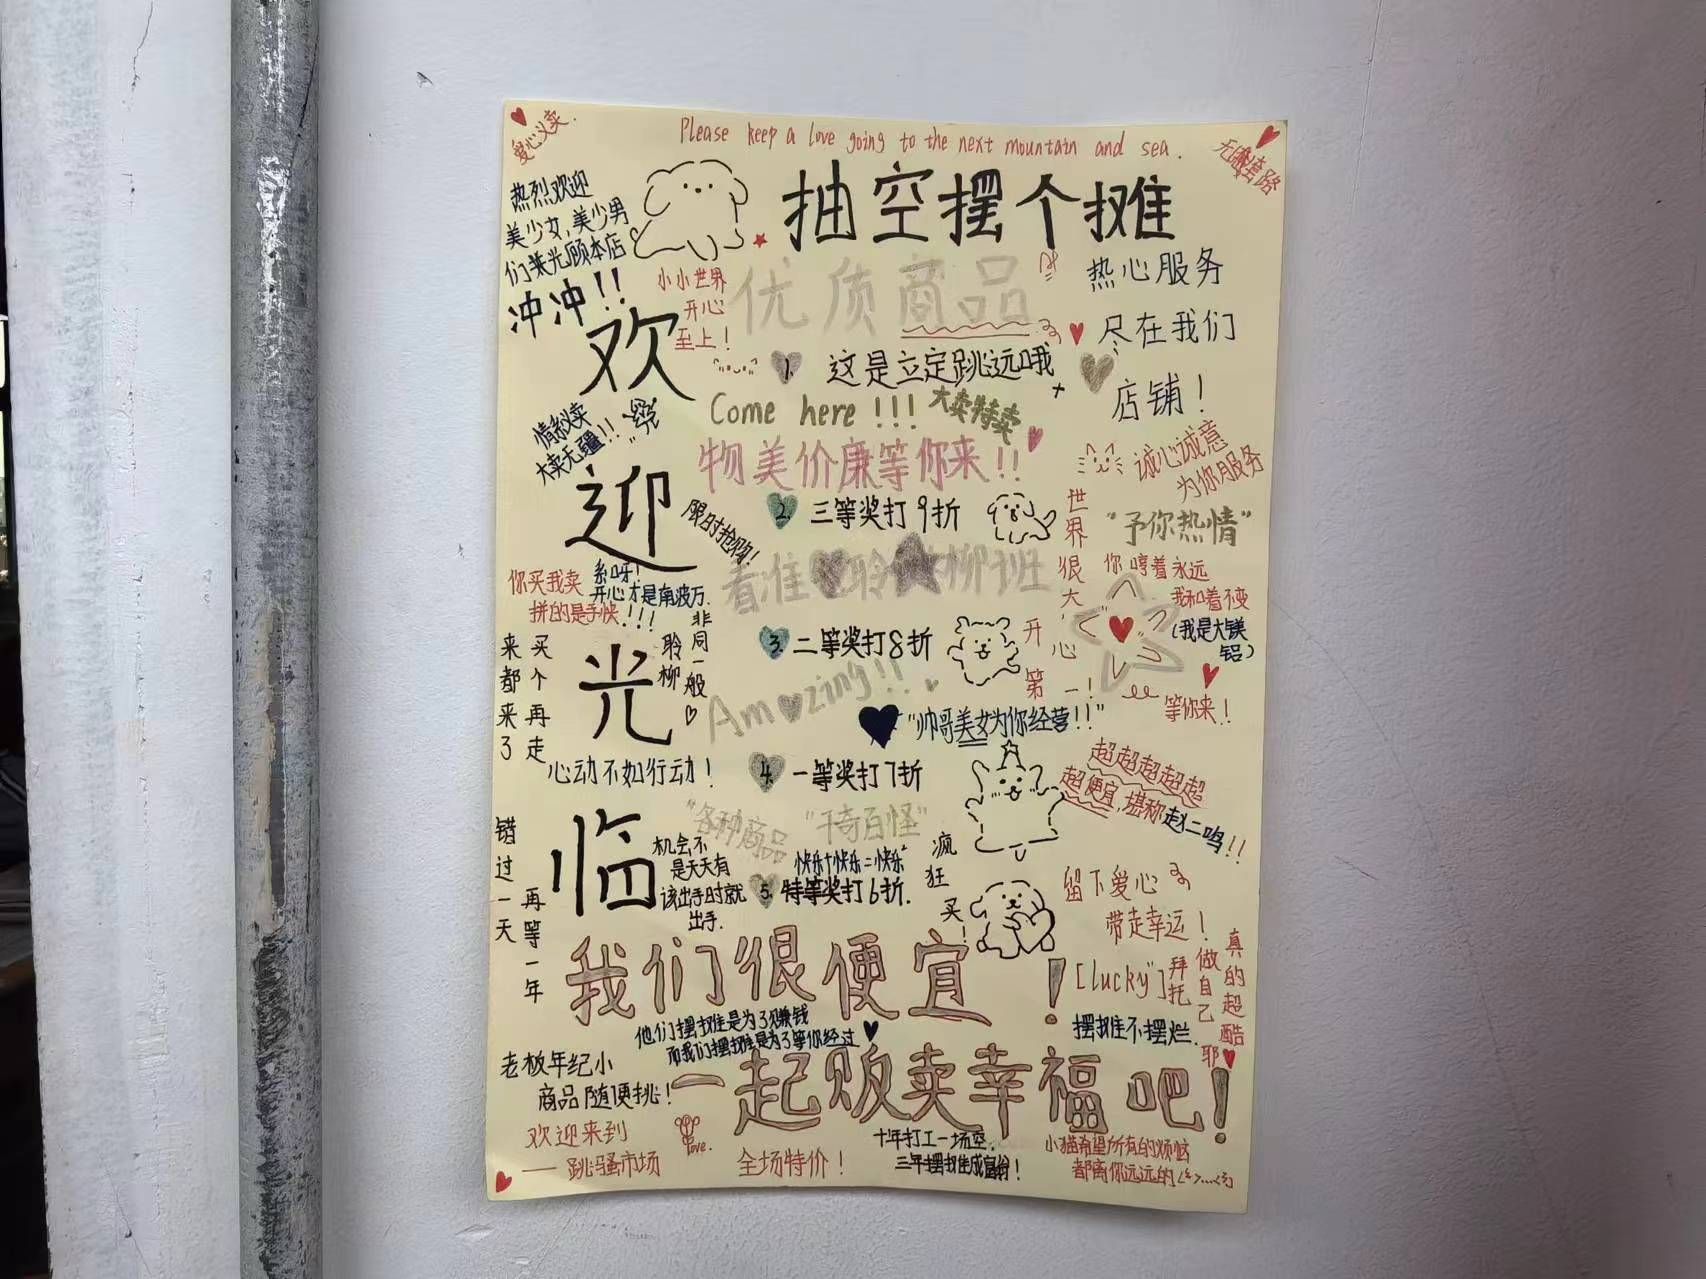 爱心义卖.
Please keep a love going to the next mountain and sea.
无套路
热烈欢迎
美少女,美少男
们来光顾本店
冲冲!!
抽空摆个摊
小小世界
开心
至上!
优质商品
热心服务
尽在我们
店铺!
欢迎光临
1. 这是立定跳远哦
Come here!!!
大卖特卖
情系义卖
大卖无疆!!
物美价廉等你来!!
诚心诚意
为你服务
限时抢购!
2. 三等奖打9折
世界很大,开心第一!
"予你热情"
看准 聆 柳班
你哼着永远
我和着不变
(我是大镁
铝)
等你来!
你买我卖
拼的是手快!!!
系呀!
开心才是南波万.
聆柳
非同一般
3. 二等奖打8折
买个再走
来都来了
Amazing!!
"帅哥美女为你经营!!"
心动不如行动!
4. 一等奖打7折
超超超超超
超便宜,堪称赵二鸣!!
"各种商品
"千奇百怪"
错过一天
再等一年
机会不
是天天有
该出手时就
出手.
快乐+快乐=快乐²
5. 特等奖打6折.
疯狂买!
留下爱心
带走幸运!
我们很便宜!
["lucky"]
拜托
做自己
真的超酷耶
他们摆摊是为了赚钱
而我们摆摊是为了等你经过
摆摊不摆烂.
老板年纪小
商品随便挑!
一起贩卖幸福吧!
欢迎来到
——跳骚市场
love.
全场特价!
十年打工一场空.
三年摆摊成富翁!
小猫希望所有的烦恼
都离你远远的